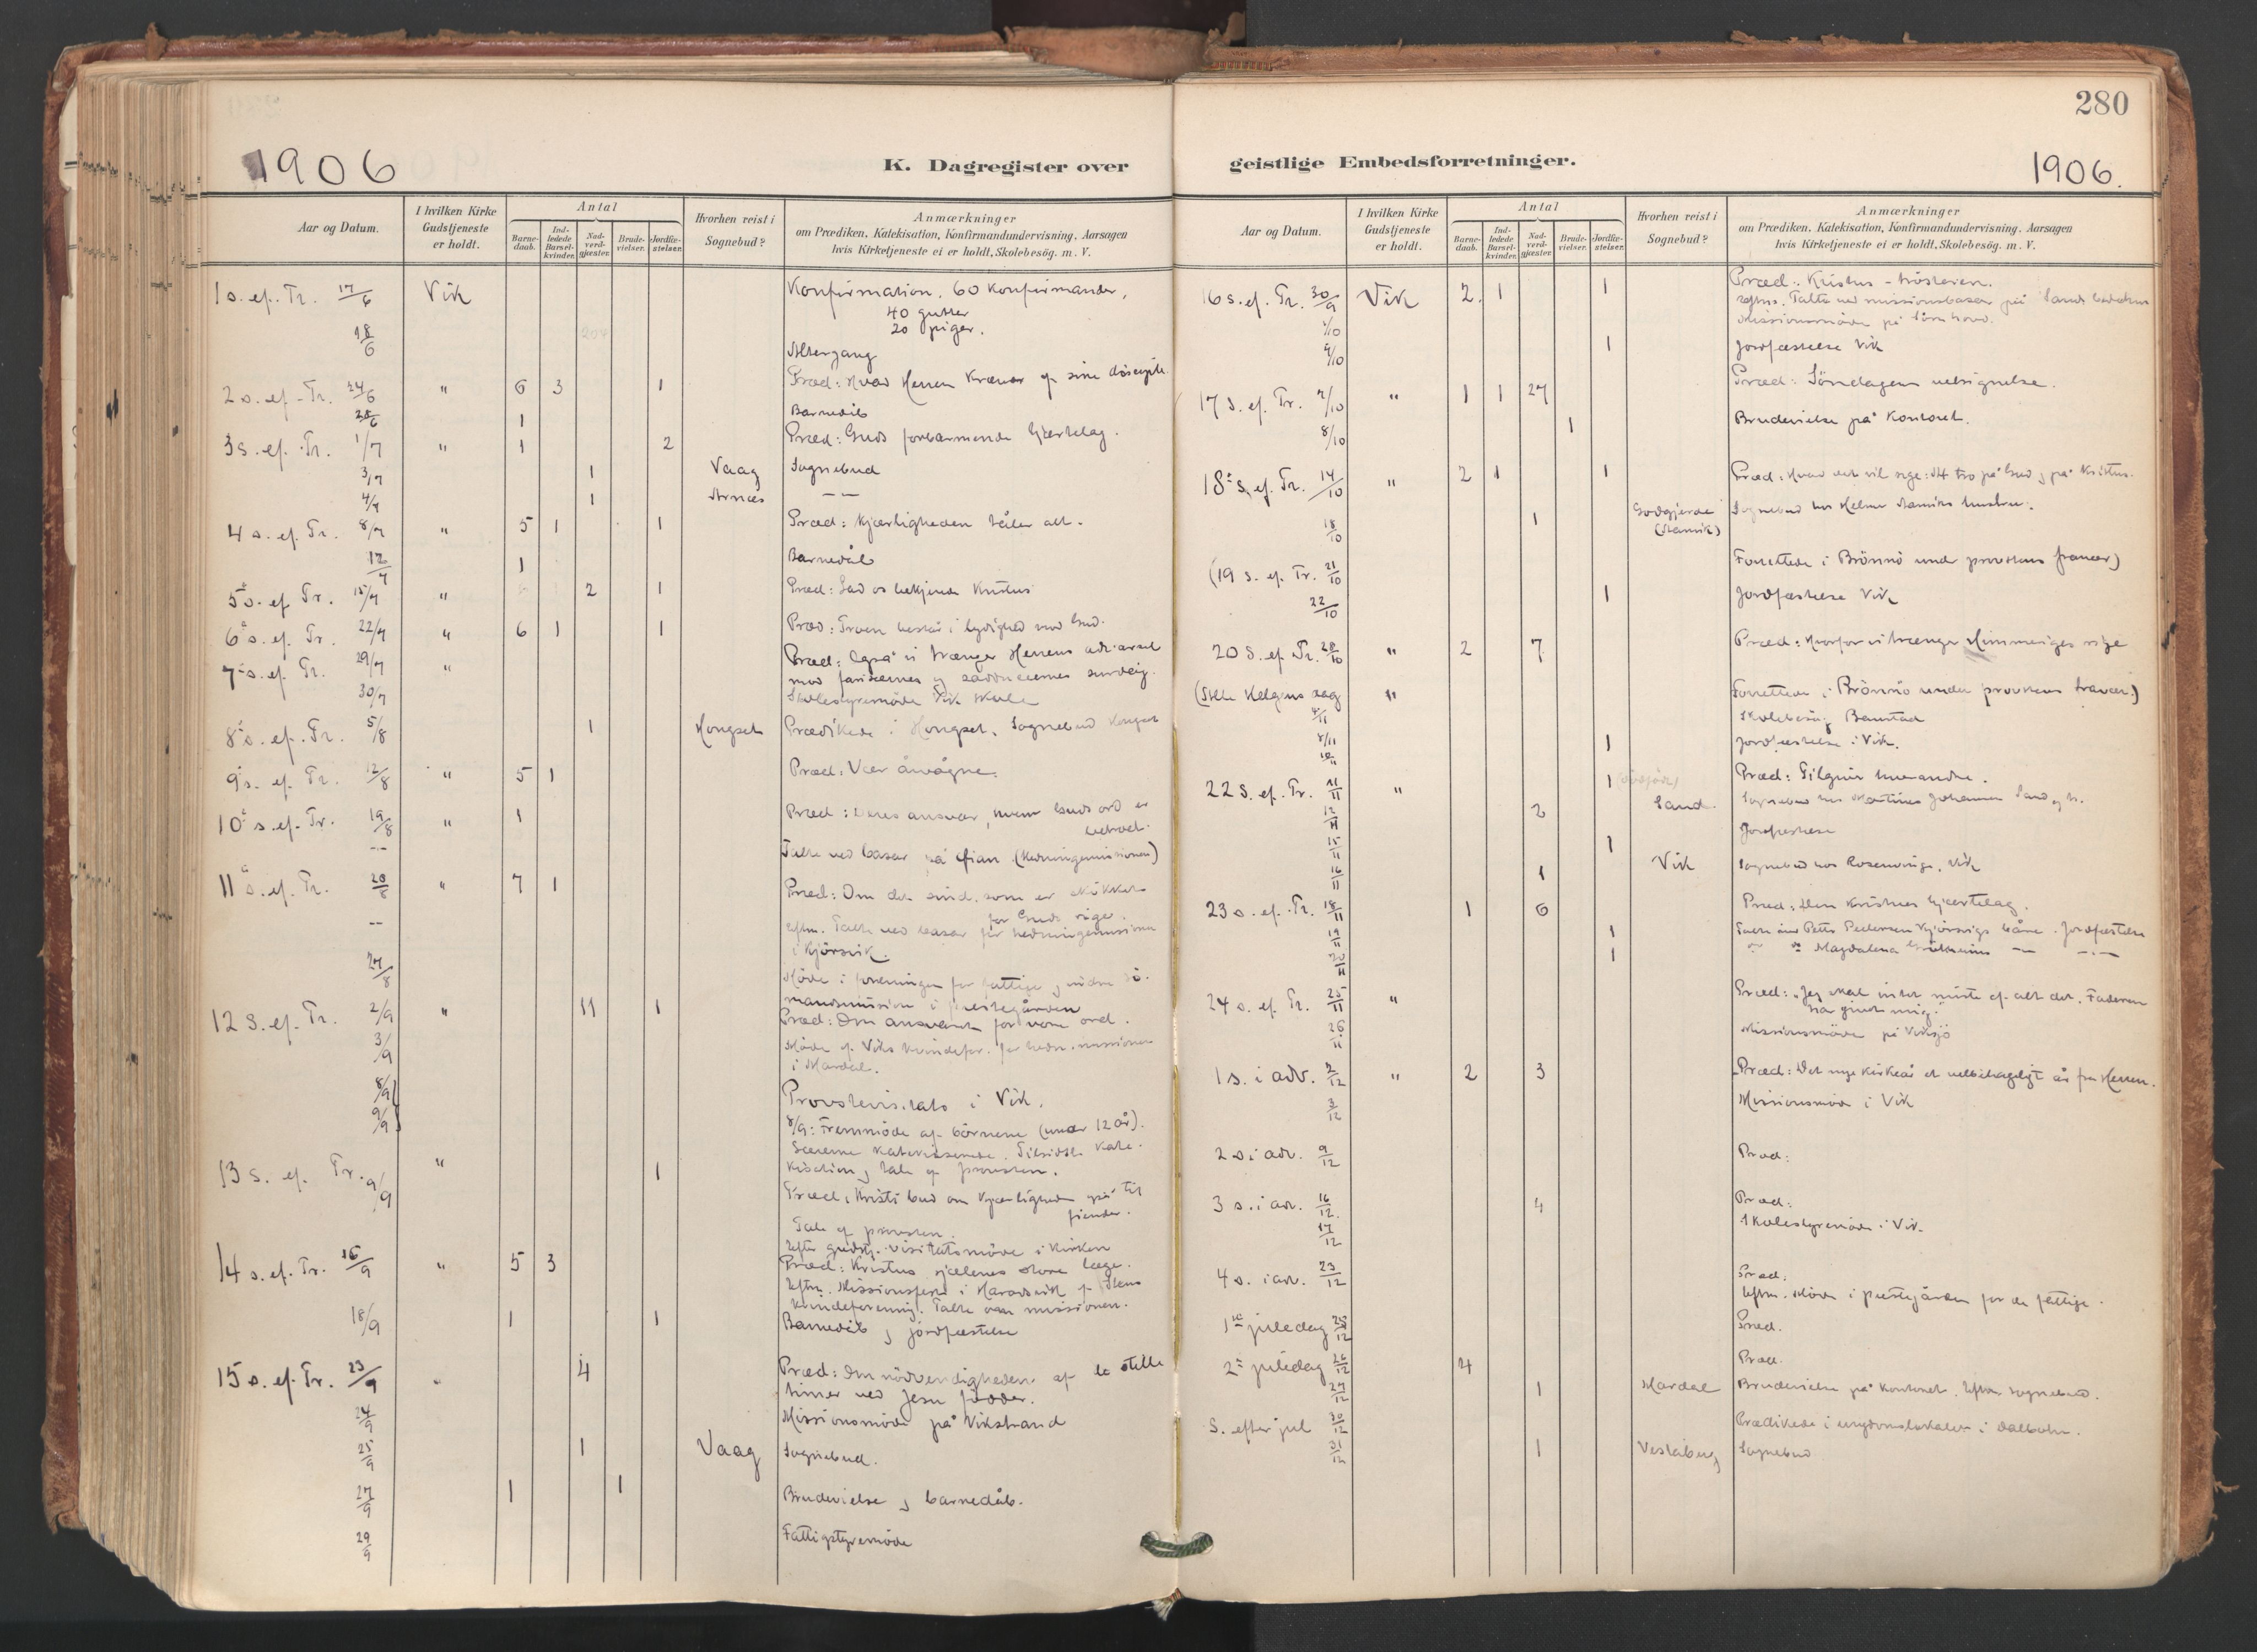 280
1906
K. Dagregister over
geistlige Embedsforretninger.
1906.
Aar og Datum.
I hvilken Kirke Gudstjeneste er holdt.
Antal
Barne-daab.
Ind-ledede Barsel-kvinder.
Nad-verd-gjæster.
Brude-vielser.
Jordfæ-stelser.
Hvorhen reist i Sognebud?
Anmærkninger
om Prædiken, Katekisation, Konfirmandundervisning, Aarsagen
hvis Kirketjeneste ei er holdt, Skolebesög. m. V.
1 s. ef. Tr. 17/6 Vik Konfirmation. 60 konfirmander,
40 gutter
20 piger.
18/6 Altergang
2 s. ef. Tr. 24/6 " 6 3 1 Præd: Hvad Herren kræver af sine disciple.
1 Barnedåb
3 s. ef. Tr. 1/7 " 1 2 Præd: Guds forbarmende hjertelag.
3/7 1 Vaag Sognebud
4/7 1 Arnæs — —
4 s. ef. Tr. 8/7 " 5 1 1 Præd: Kjærligheden tåler alt.
12/7 1 Barnedåb
5 s. ef. Tr. 15/7 " 2 1 Præd: Lad os bekjende Kristus
6 s. ef. Tr. 22/7 " 6 1 1 Præd: Troen består i lydighed mod Gud.
7 s. ef. Tr. 29/7 " Præd: Også vi trænger Herrens advarsel
mod farisæernes og sadducæernes surdeig.
30/7 Skolestyremöde Vik skole
8 s. ef. Tr. 5/8 1 Hongset Prædikede i Hongset. Sognebud Hongset
9 s. ef. Tr. 12/8 " 5 1 Præd: Vær årvågne.
10 s. ef. Tr. 19/8 " 1 Præd: Deres ansvar, hvem Guds ord er
betroet.
-- Talte ved basar på (Hedningemissionen)
11 s. ef. Tr. " 7 1 Præd: Om det sind, som er skikket
for Guds rige.
-- Eftm. Talte ved basar for hedningemissionen
i Kjörsvik.
27/8 Möde i foreningen for fattige og indre sö-
mandsmission i prestegården
12 s. ef. Tr. 2/9 " 11 1 Præd: Om ansvaret for vore ord.
3/9 Möde af Viks kvindefor. for hedn. missionen
i Mardal.
8/9 Provstevisitats i Vik.
9/9 8/9: Fremmöde af börnene (under 12 år).
Lærerne katekiserede. Tilsidst kate-
kisation og tale af provsten.
13 s. ef. Tr. 9/9 " 1 Præd: Kristi bud om kjærligheden også til
fiender.
Tale af provsten.
Efter gudstj. visitatsmöde i kirken
14 s. ef. Tr. 16/9 " 5 3 Præd: Kristus sjælenes store læge.
Eftm. Missionsfest i af
kvindeforening. Talte om missionen.
18/9 1 1 Barnedåb og jordfæstelse
15 s. ef. Tr. 23/9 " 4 Præd: Om nödvendigheden af de stille
timer ved Jesu födder.
24/9 Missionsmöde på Vikstrand
25/9 1 Vaag Sognebud.
27/9 1 1 Brudevielse og barnedåb.
29/9 Fattigstyremöde
Aar og Datum.
I hvilken Kirke Gudstjeneste er holdt.
Antal
Barne-daab.
Ind-ledede Barsel-kvinder.
Nad-verd-gjæster.
Brude-vielser.
Jordfæ-stelser.
Hvorhen reist i Sognebud?
Anmærkninger
om Prædiken. Katekisation, Konfirmandundervisning. Aarsagen
hvis Kirketjeneste ei er holdt, Skolebesög. m. V.
16 s. ef. Tr. 30/9 Vik 2 1 1 Præd: Kristus -
eftm. Talte ved missionsbasar på Sands bedehus
1/10 Missionsmöde på
4/10 1 Jordfæstelse Vik
17 s. ef. Tr. 7/10 " 1 1 27 Præd: Söndagens velsignelse.
8/10 1 Brudevielse på kontoret.
18 s. ef. Tr. 14/10 " 2 1 1 Præd: Hvad det vil sige: At tro på Gud og på Kristus.
18/10 1 Godgjerde (Stamvik) Sognebud hos hustru.
(19 s. ef. Tr. 21/10 Forrettede i Brönnö under provstens fravær)
22/10 1 Jordfæstelse Vik
20 s. ef. Tr. 28/10 " 2 7 Præd: Hvorfor vi trænger Himmeriges rige
(Alle Helgens dag " Forrettede i Brönnö under provstens fravær.)
4/11 Skolebesög
8/11 1 Jordfæstelse i Vik.
22 s. ef. Tr. 11/11 " 1 Præd: Tilgiv hverandre.
12/11 2 Sand. Sognebud hos Martines Johannesen Sand og h.
15/11 1 Jordfæstelse
16/11 1 Vik Sognebud hos Rosenvinge, Vik
23 s. ef. Tr. 18/11 1 6 Præd: Den kristnes hjertelag.
19/11 1 Talte ved Petter Pedersen båre. Jordfæstelse
20/11 1 — " Magdalena — —
24 s. ef. Tr. 25/11 " Præd: "Jeg skal intet miste af alt det, Faderen
har givet mig."
26/11 Missionsmöde på
1 s. i adv. 2/12 " 2 3 Præd: Det nye kirkeår et velbehageligt år fra Herren.
3/12 Missionsmöde i Vik
2 s. i adv. 9/12 Præd:
3 s. i adv. 16/12 4 Præd:
17/12 Skolestyremöde i Vik.
4 s. i adv. 23/12 Præd:
Eftm. Möde i prestegården for de fattige.
1ste juledag 25/12 Præd.
2 juledag 26/12 4 Præd.
27/12 1 Mardal Brudevielse på kontoret. Efter sognebud.
S. efter jul 30/12 Prædikede i ungdomslokalet i
31/12 1 Vestaberg Sognebud